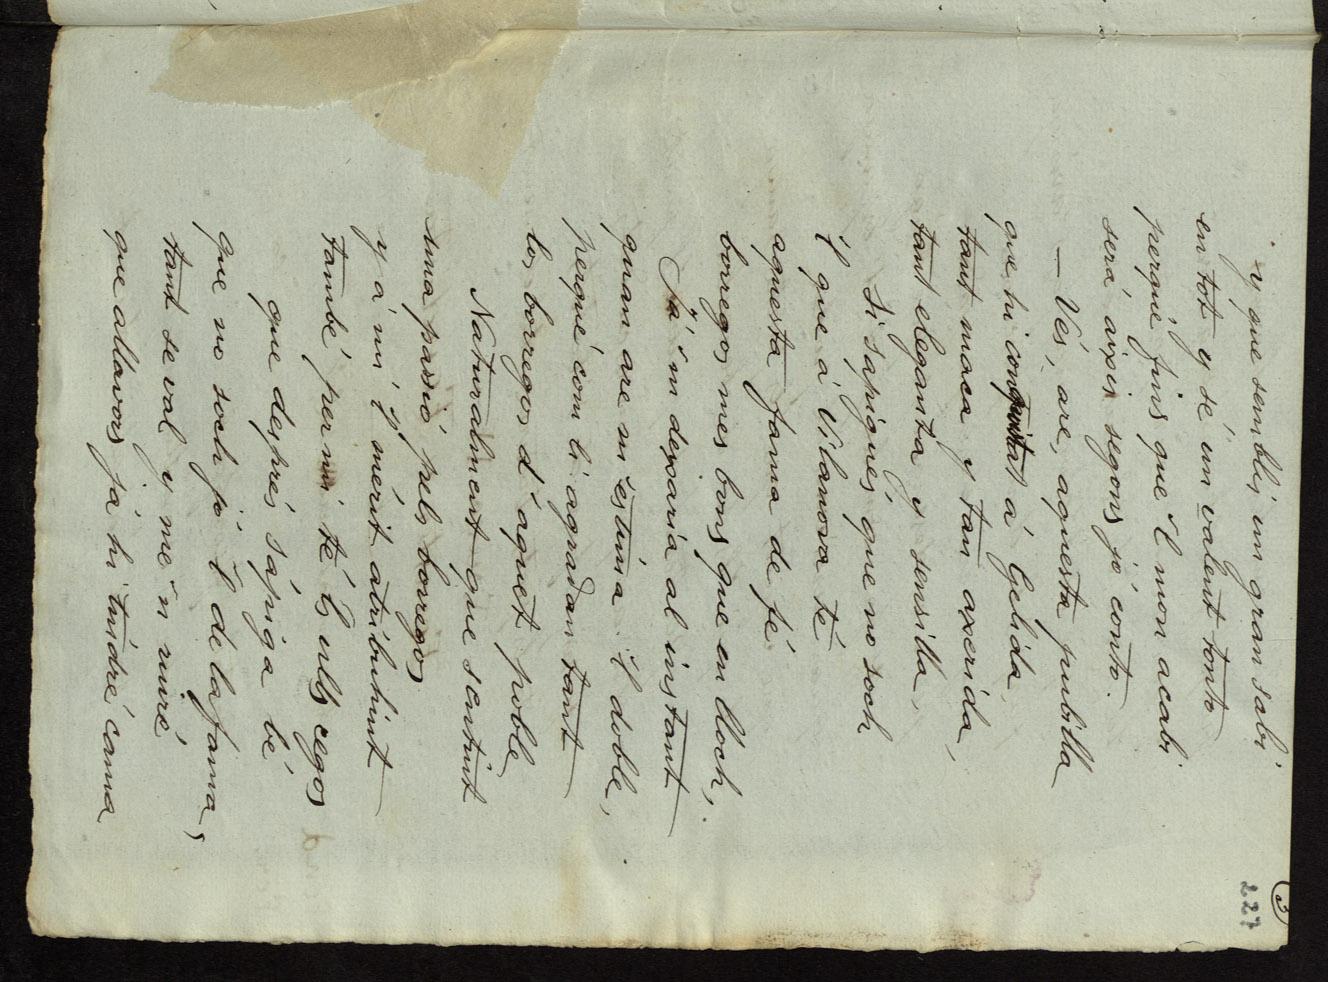 3
227
y que semblés un gran sabi
en tot y sé un valent tonto
perqué fins que 'l mon acabi
será aixis segons jo conto.
— Vés, are, aquesta pubilla
que hi conquistat á Gelida,
tant maca y tan axerida,
tant eleganta y sensilla,
si sapigués que no soch
l' que á Vilanova té
aquesta fama de fé
borregos mes bons que en lloch,
Ja 'm deixaría al instant
quan are m' estima 'l doble,
perqué com li agradan tant
los borregos d' aquet poble,
Naturalment que sentint
una passió pels borregos
y á mi 'l mérit atribuhint
també per mi té 'ls ulls cegos
que després sápiga bé
que no soch jo 'l de la fama,
tant se val y me 'n riuré
que allavors ja hi tindré cama